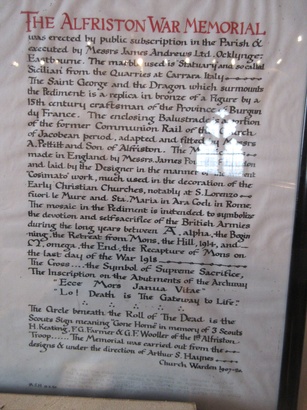 THE ALFRISTON WAR MEMORIAL
was erected by public subscription in the Parish &
executed by Messrs James Andrews Ltd., Ocklynge,
Eastbourne. The marble used is 'Statuary and so called
Sicilian' from the Quarries at Carrara Italy
The Saint George and the Dragon which surmounts
the Pediment is a replica in bronze of a Figure by a
15th century craftsman of the Province of Burgun
dy France. The enclosing Balustrade portion
of the former Communion Rail of Church
of Jacobean period, adapted and fitted by Messrs
A. Pettitt and Son of Alfriston. The
made in England by Messrs James
and laid by the Designer in the manner of
'Cosimato' work, much used in the decoration of the
Early Christian Churches, notably at S. Lorenzo
fuori le Mure and Sta. Maria in Ara Coeli in Rome
The mosaic in the Pediment is intended to symbolize
the devotion and self-sacrifice of the British Armies
during the long years between A, alpha, the Begin
ning, the Retreat from Mons, the Hill, 1914, and
omega, the End, the Recapture of Mons on
the last day of the War 1918
The Cross.... the Symbol of Supreme Sacrifice,
The Inscription on the Abutments of the Archway
"Ecce Mors Janua Vitae"
"Lo! Death is The Gateway to Life."
The Circle beneath the Roll of The Dead is the
Scouts Sign meaning 'Gone Home' in memory of 3 Scouts
H. Keating, F.G. Farmer & G.F. Wooller of the 1st Alfriston
Troop...... The Memorial was carried out from the
designs & under the direction of Arthur S. Haynes
Church Warden